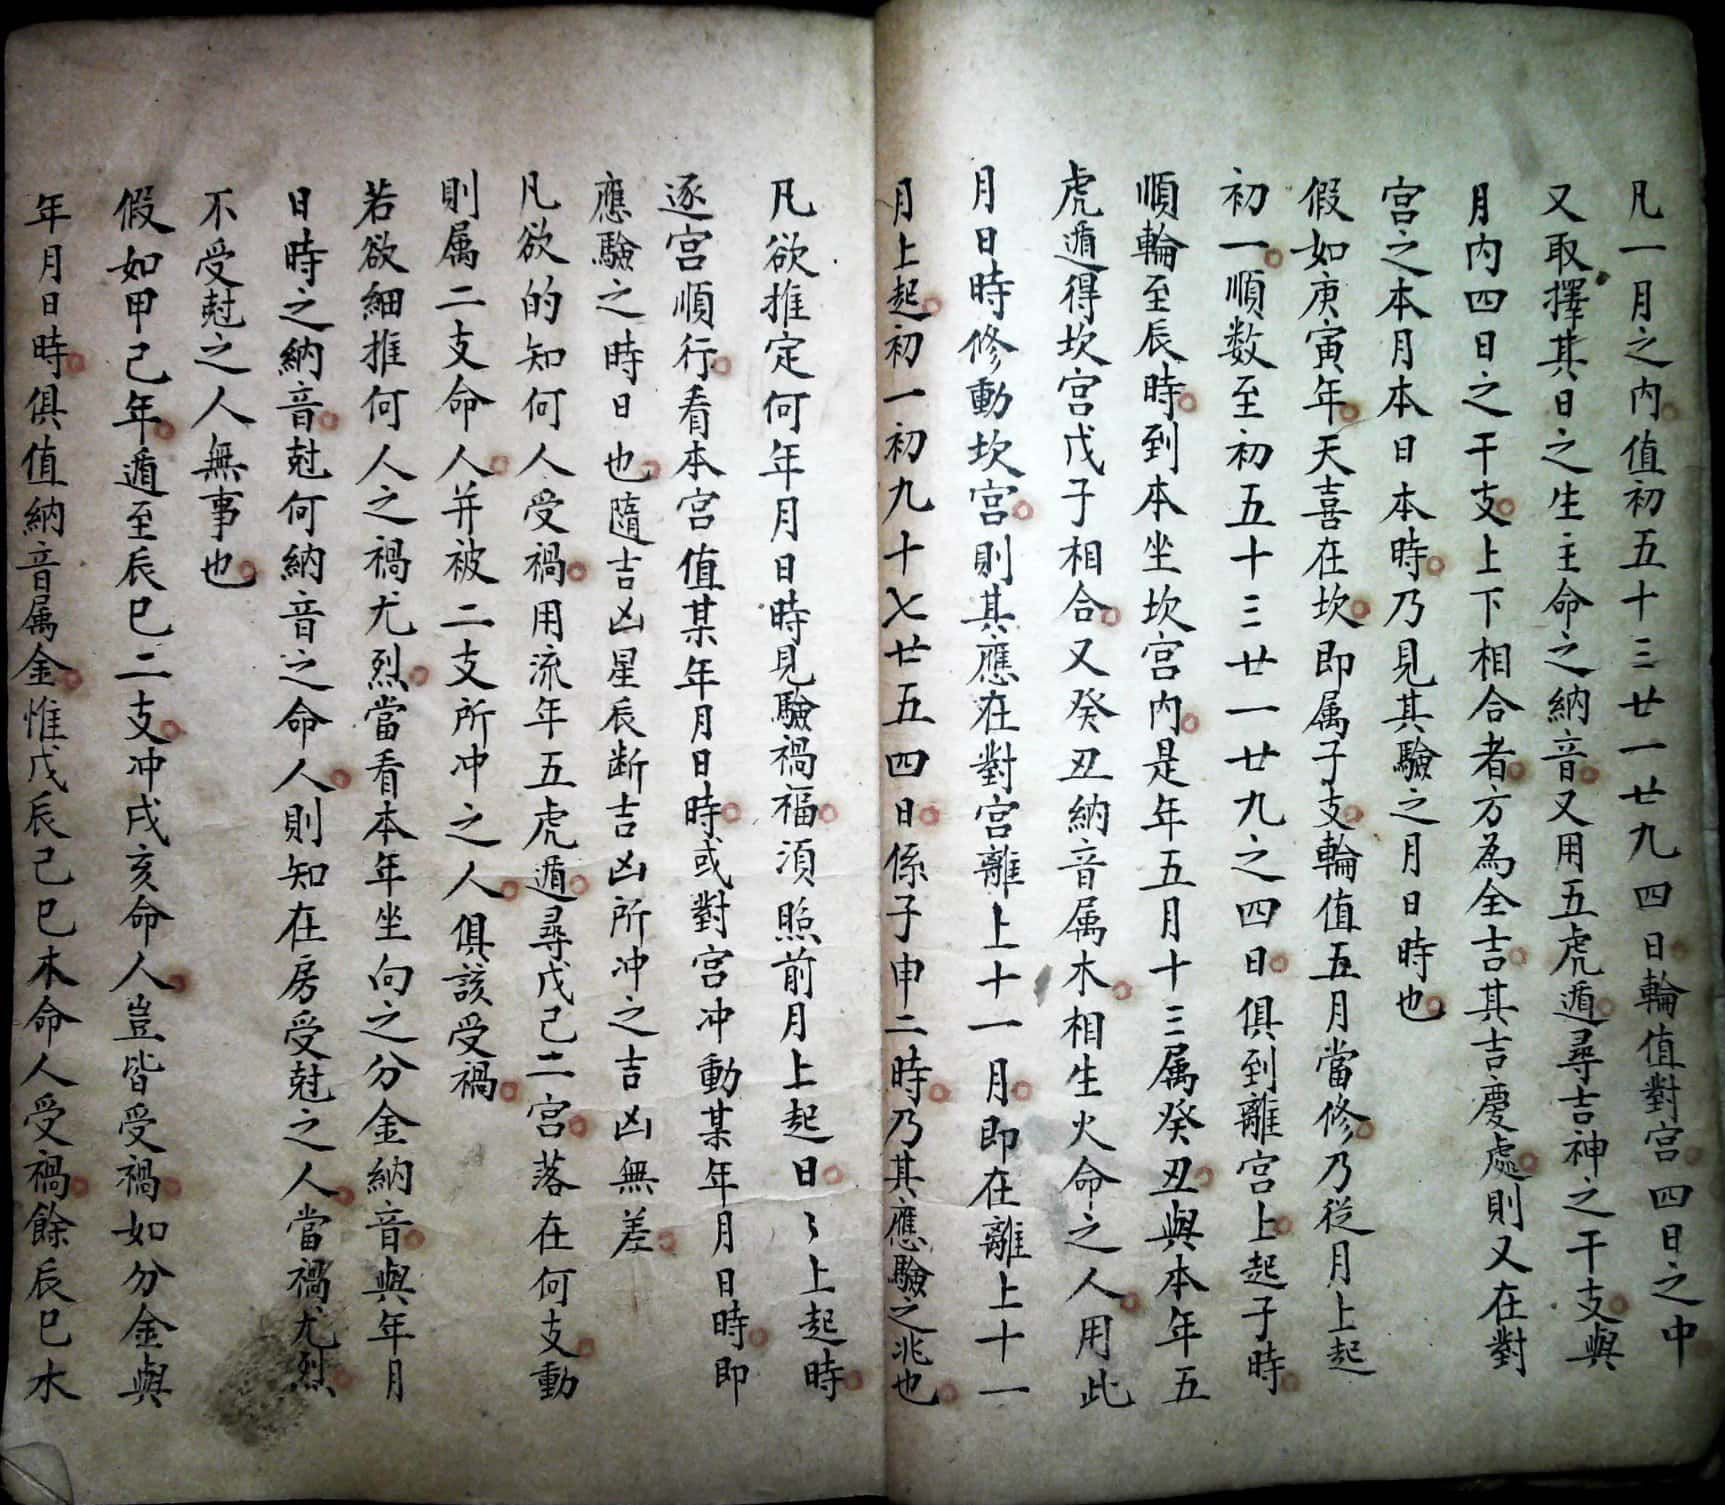 凡一月之内值初五十三廿一廿九四日輪值對宮四日之中
又取擇其日之生主命之納音又用五虎遁尋吉神之干支與
月内四日之干支上下相合者方為全吉其吉慶處則又在對
宮之本月本日本時乃見其驗之月日時也
假如庚寅年天喜在坎即属子支輪值五月當修乃從月上起
初一順数至初五十三廿一廿九之四日俱到離宮上起子時
順輪至辰時到本坐坎宮内是年五月十三属癸丑與本年五
虎遁得坎宮戊子相合又癸丑納音属木相生火命之人用此
月日時修動坎宮則其應在對宮離上十一月即在離上十一
月上起初一初九十七廿五四日係子申二時乃其應驗之兆也
凡欲推定何年月日時見驗禍福湏照前月上起日〻上起時
逐宮順行看本宮值某年月日時或對宮冲動某年月日時即
應驗之時日也隨吉凶星辰断吉凶所冲之吉凶無差
凡欲的知何人受禍用流年五虎遁尋戊己二宮落在何支動
則属二支命人并被二支所冲之人俱該受禍
若欲細推何人之禍尤烈當看本年坐向之分金納音與年月
日時之納音尅何納音之命人則知在房受尅之人當禍尤烈
不受尅之人無事也
假如甲己年遁至辰巳二支冲戌亥命人豈皆受禍如分金與
年月日時俱值納音属金惟戊辰己巳木命人受禍餘辰巳水